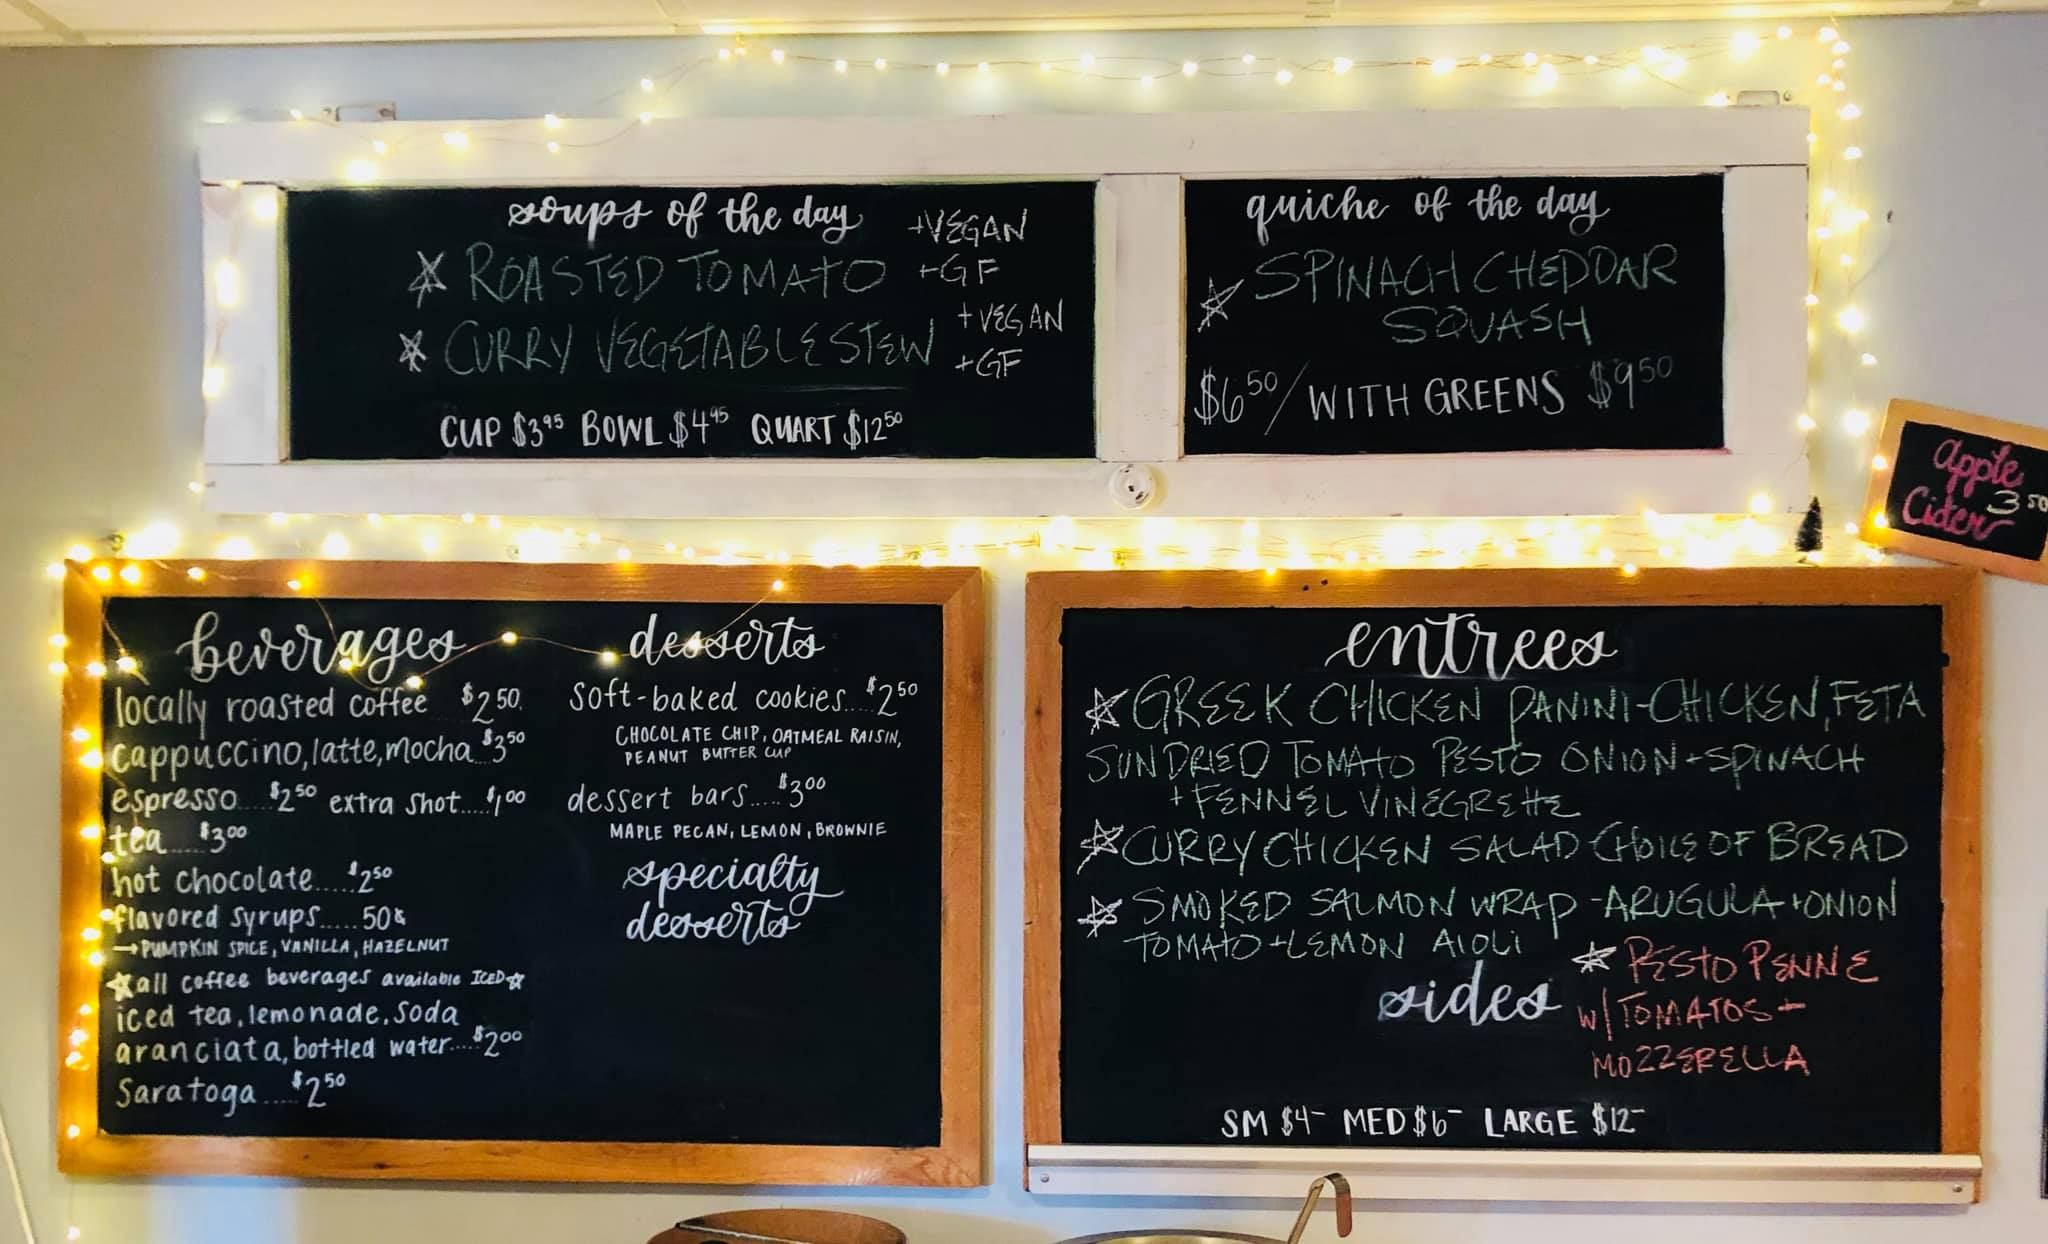 soups of the day
+VEGAN
☆ ROASTED TOMATO +GF
☆ CURRY VEGETABLE STEW +VEGAN
+GF
CUP $3.95 BOWL $4.95 QUART $12.50
quiche of the day
☆ SPINACH CHEDDAR
SQUASH
$6.50/WITH GREENS $9.50
Apple
Cider 3.50
beverages
locally roasted coffee $2.50
cappuccino, latte, mocha...$3.50
espresso....$2.50 extra shot.....$1.00
tea.....$3.00
hot chocolate.....$2.50
flavored syrups.....50¢
→PUMPKIN SPICE, VANILLA, HAZELNUT
☆all coffee beverages available ICED☆
iced tea, lemonade, soda
aranciata, bottled water....$2.00
Saratoga.....$2.50
desserts
soft-baked cookies.....$2.50
CHOCOLATE CHIP, OATMEAL RAISIN,
PEANUT BUTTER CUP
dessert bars.....$3.00
MAPLE PECAN, LEMON, BROWNIE
specialty
desserts
entrees
☆ GREEK CHICKEN PANINI-CHICKEN, FETA
SUNDRIED TOMATO PESTO ONION+SPINACH
+FENNEL VINEGRETTE
☆ CURRY CHICKEN SALAD-CHOICE OF BREAD
☆ SMOKED SALMON WRAP-ARUGULA+ONION
TOMATO+LEMON AIOLI
sides
☆ PESTO PENNE
W/TOMATOS+
MOZZERELLA
SM $4- MED $6- LARGE $12-